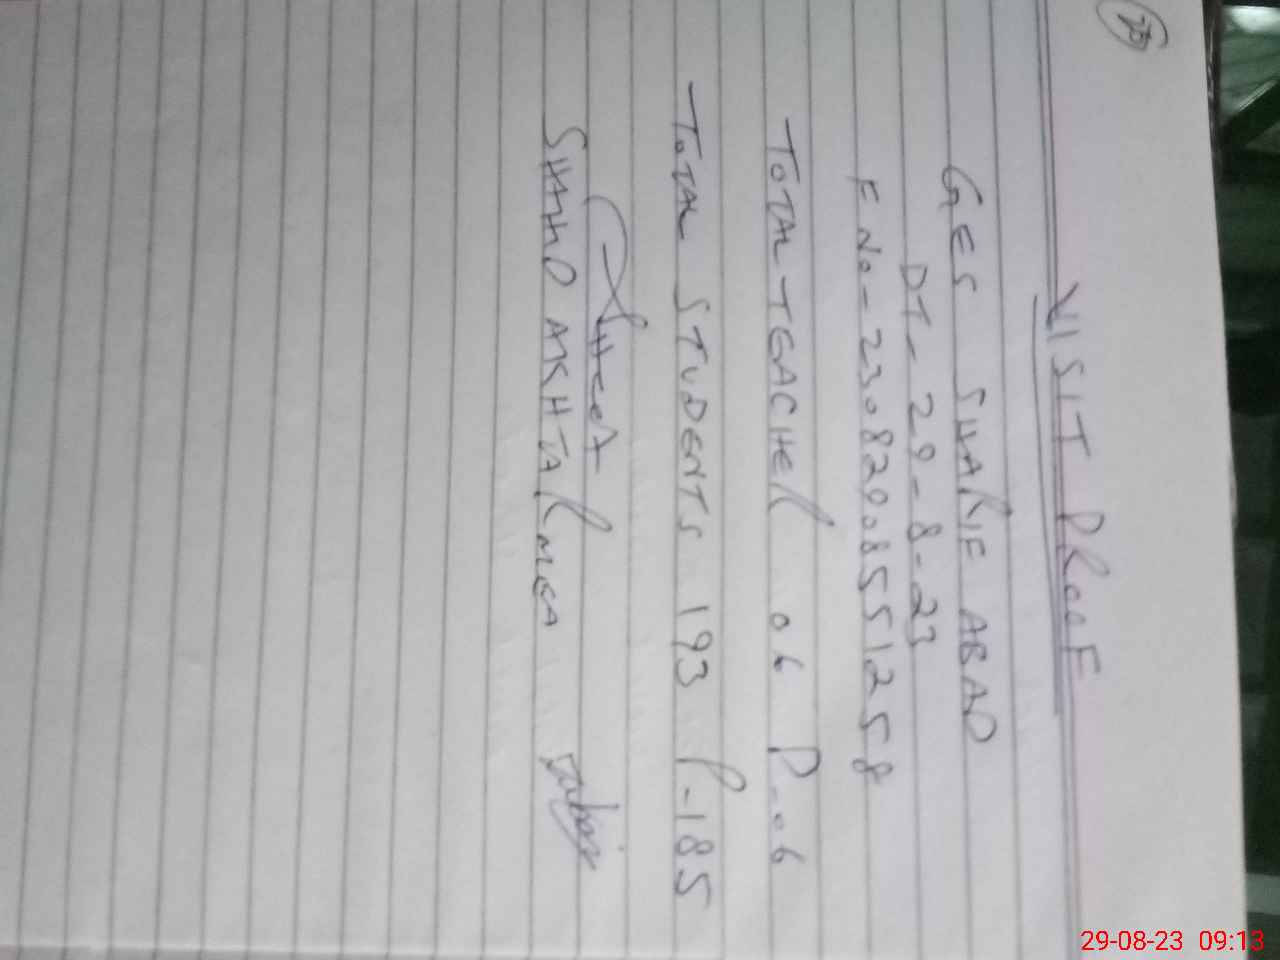 VISIT PROOF
GES SHARIF ABAD
DT- 29-8-23
F No- 23082908551258
TOTAL TEACHER 06 P-06
TOTAL STUDENTS 193 P-185
SHAHID AKHTAR MEA
29-08-23 09:13